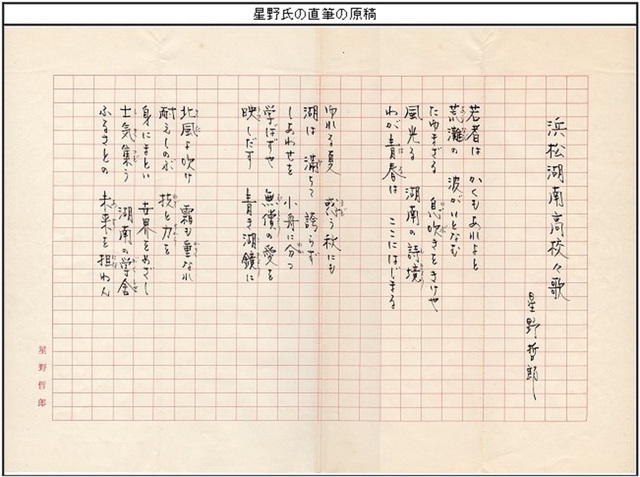 星野氏の直筆の原稿
浜松湖南高校々歌
星野哲郎
若者は かくもあれよと
荒灘の 波がいとなむ
たゆまざる 息吹きをきけや
風光る 湖南の詩境
わが青春は ここにはじまる
ゆれる夏 惑う秋にも
湖は 満ちて誇らず
しあわせを 小舟に分つ
学ばずや 無償の愛を
映しだす 青き湖鏡に
北風よ吹け 霜も重なれ
耐えしのぶ 技と力を
身にまとい 世界をめざし
士気集う 湖南の学舎
ふるさとの 未来を担わん
星野哲郎